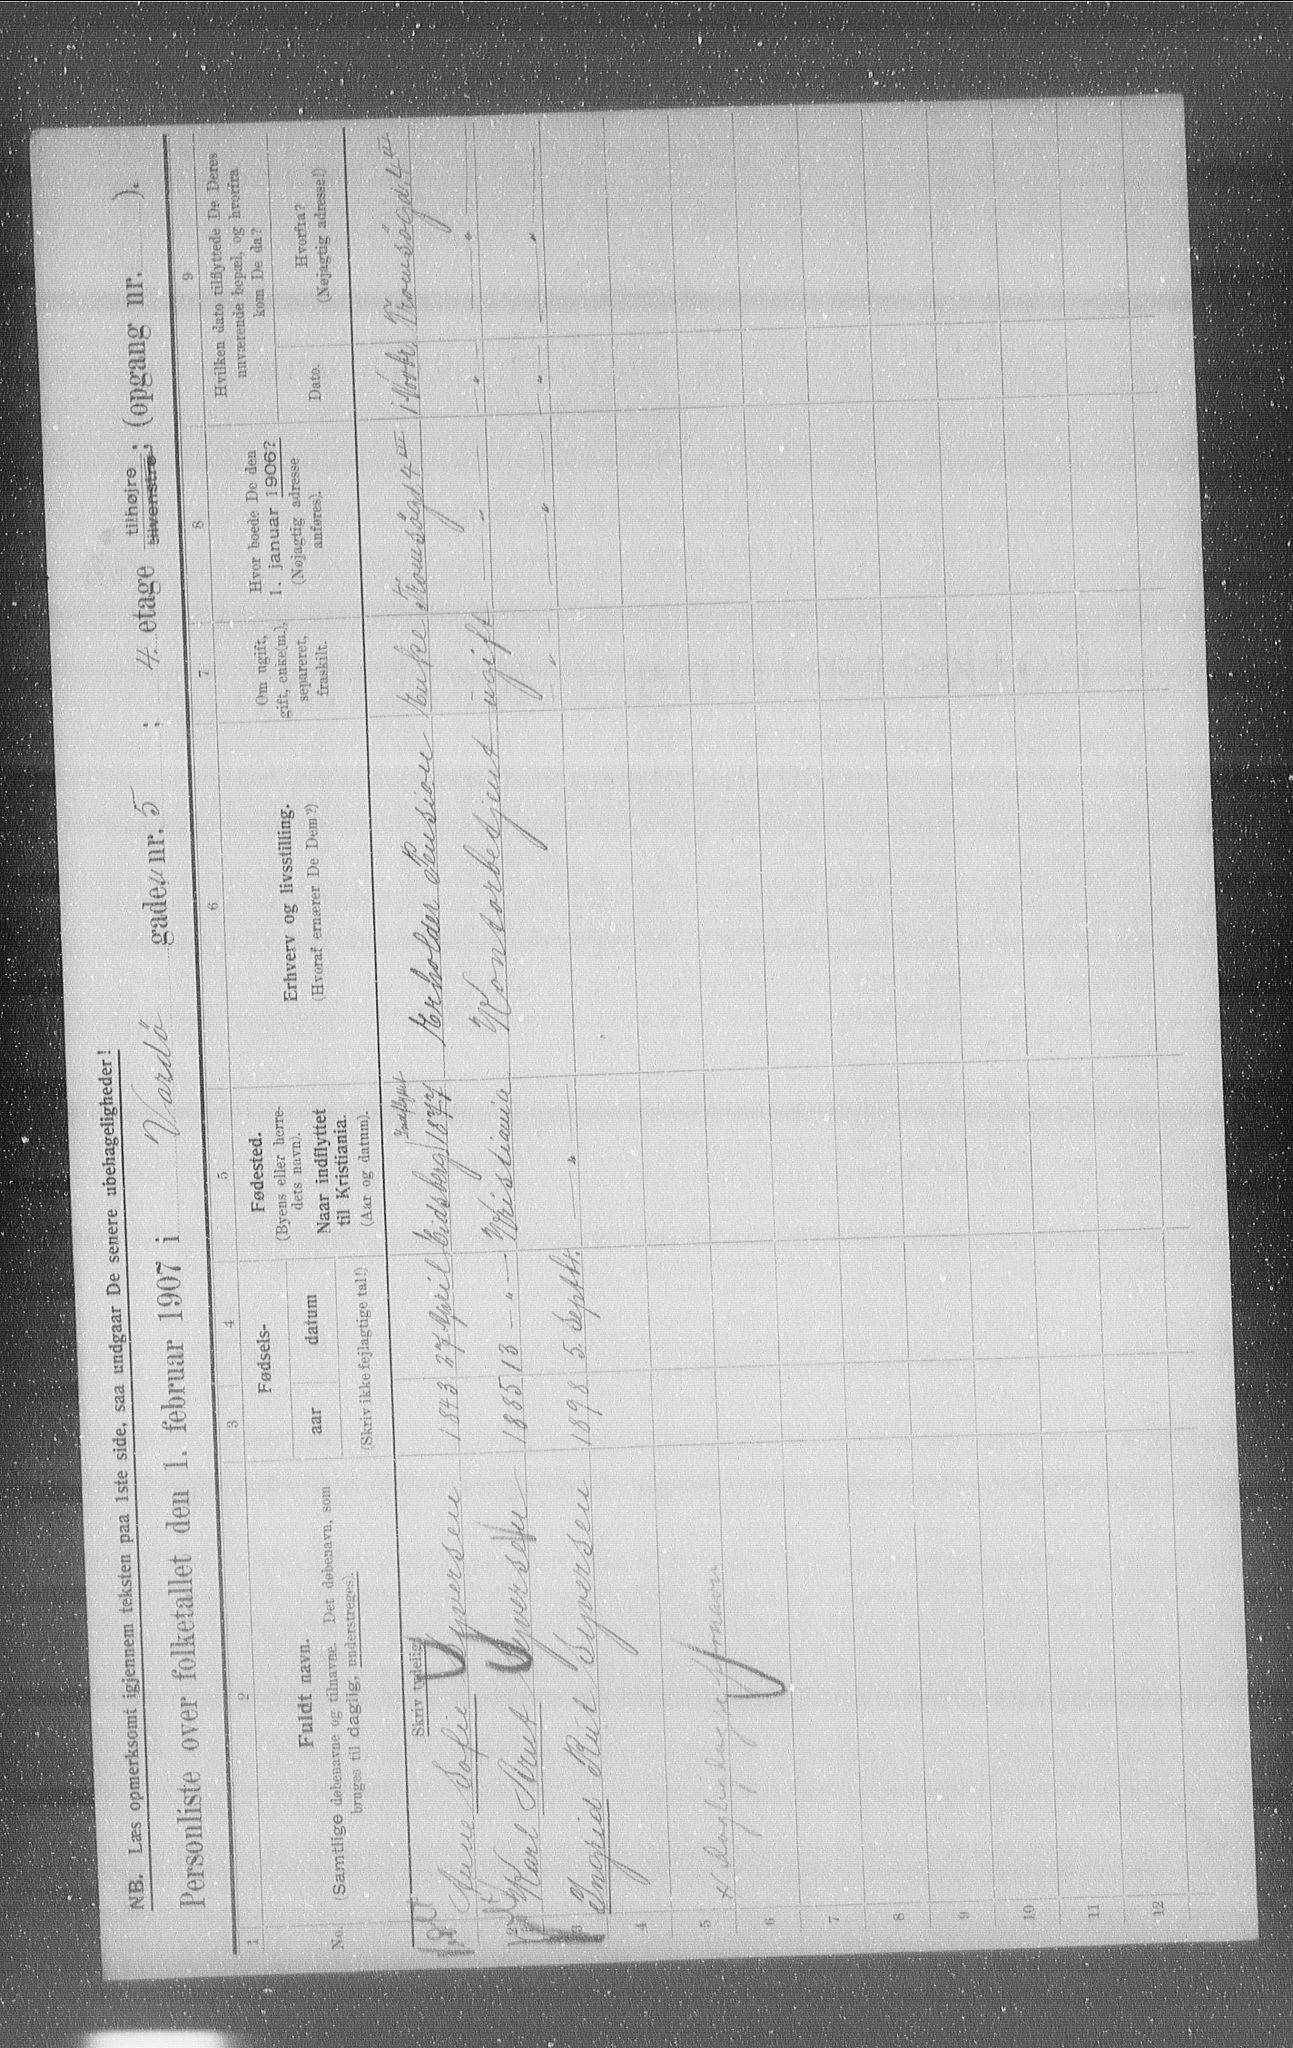 NB. Læs opmerksomt igjennem teksten paa 1ste side, saa undgaar De senere ubehageligheder!
Personliste over folketallet den 1. februar 1907 i Vardö gaden nr. 5 ; 4. etage tilhøjre ; (opgang nr. ).
tilvenstre
1 2 3 4 5 6 7 8 9
No.
Fuldt navn.
(Samtlige døbenavne og tilnavne. Det døbenavn, som
bruges til daglig, understreges).
Fødsels-
aar
datum
(Skriv ikke fejlagtige tal!)
Fødested.
(Byens eller herre-
dets navn).
Naar indflyttet
til Kristiania.
(Aar og datum).
Erhverv og livsstilling.
(Hvoraf ernærer De Dem?)
Om ugift,
gift, enke(m.),
separeret,
fraskilt.
Hvor boede De den
1. januar 1906?
(Nøjagtig adresse
anføres).
Hvilken dato tilflyttede De Deres
nuværende bopæl, og hvorfra
kom De da?
Dato.
Hvorfra?
(Nøjagtig adresse!)
Skriv tydelig!
1 Anne Sofie Syversen 1843 27 April Eidsberg Indflyttet 1877 Erholder Pension Enke Tromsögd 4 i Oktbr. Tromsögd. 4
2 Karl Arnt Syversen 1885 13 — " — Kristiania Kontorbetjent ugift — " — — " — — " —
3 Ingrid Rut Syversen 1898 5. Septbr. — " — — " — — " — — " — — " —
4
5
6
7
8
9
10
11
12